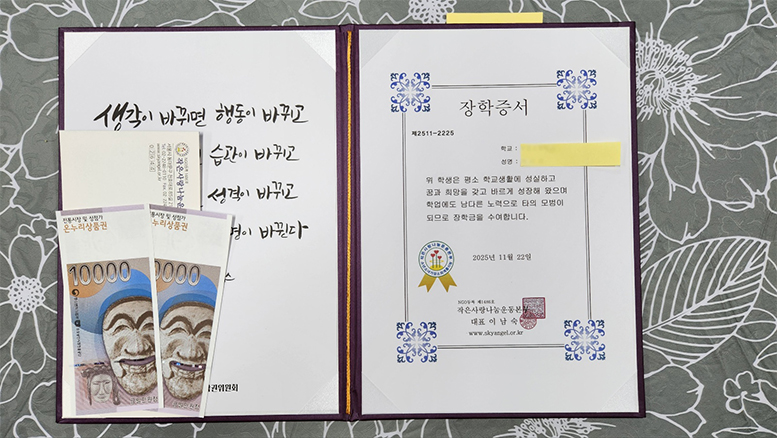 생각이 바뀌면 행동이 바뀌고
습관이 바뀌고
성격이 바뀌고
바뀐다
전통시장 및 상점가
온누리상품권
10000
전통시장 및 상점가
온누리상품권
0000
권위원회
장학증서
제2511-2225
학교 :
성명 :
위 학생은 평소 학교생활에 성실하고
꿈과 희망을 갖고 바르게 성장해 왔으며
학업에도 남다른 노력으로 타의 모범이
되므로 장학금을 수여합니다.
2025년 11월 22일
작은사랑나눔운동본부
대표 이 남 숙
www.skyangel.or.kr